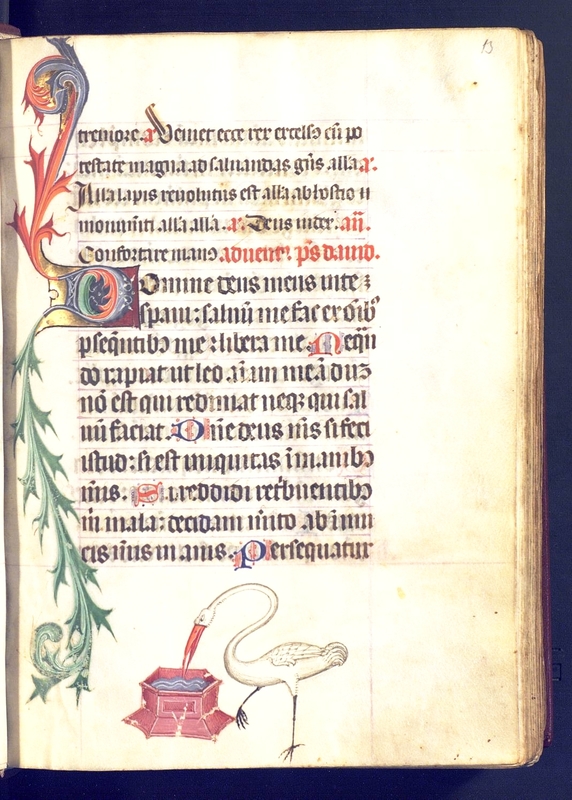 13
tremore. a Veniet ecce rex excelsꝰ cū po
testate magna ad saluandas gn̄s. alla a.
Alla lapis reuolutus est alla ab hostio
monumēti alla alla. a. Deus inder. an̄.
Confortate manꝰ aduenet. p̄s dauid.
Domine deus meus in te
speraui: saluū me fac ex oib
ꝑseqn̄tibꝫ me ⁊ libera me. Neqn̄
do rapiat ut leo aīam meā dū
nō est qui redimat neqꝫ qui sal
uū faciat. Dn̄e deus m̄s si feci
istud: si est iniquitas ī manibꝫ
m̄is. Si reddidi retbuentibꝫ
m̄ mala: decidam m̄ito ab inim
cis m̄is inanis. Persequatur